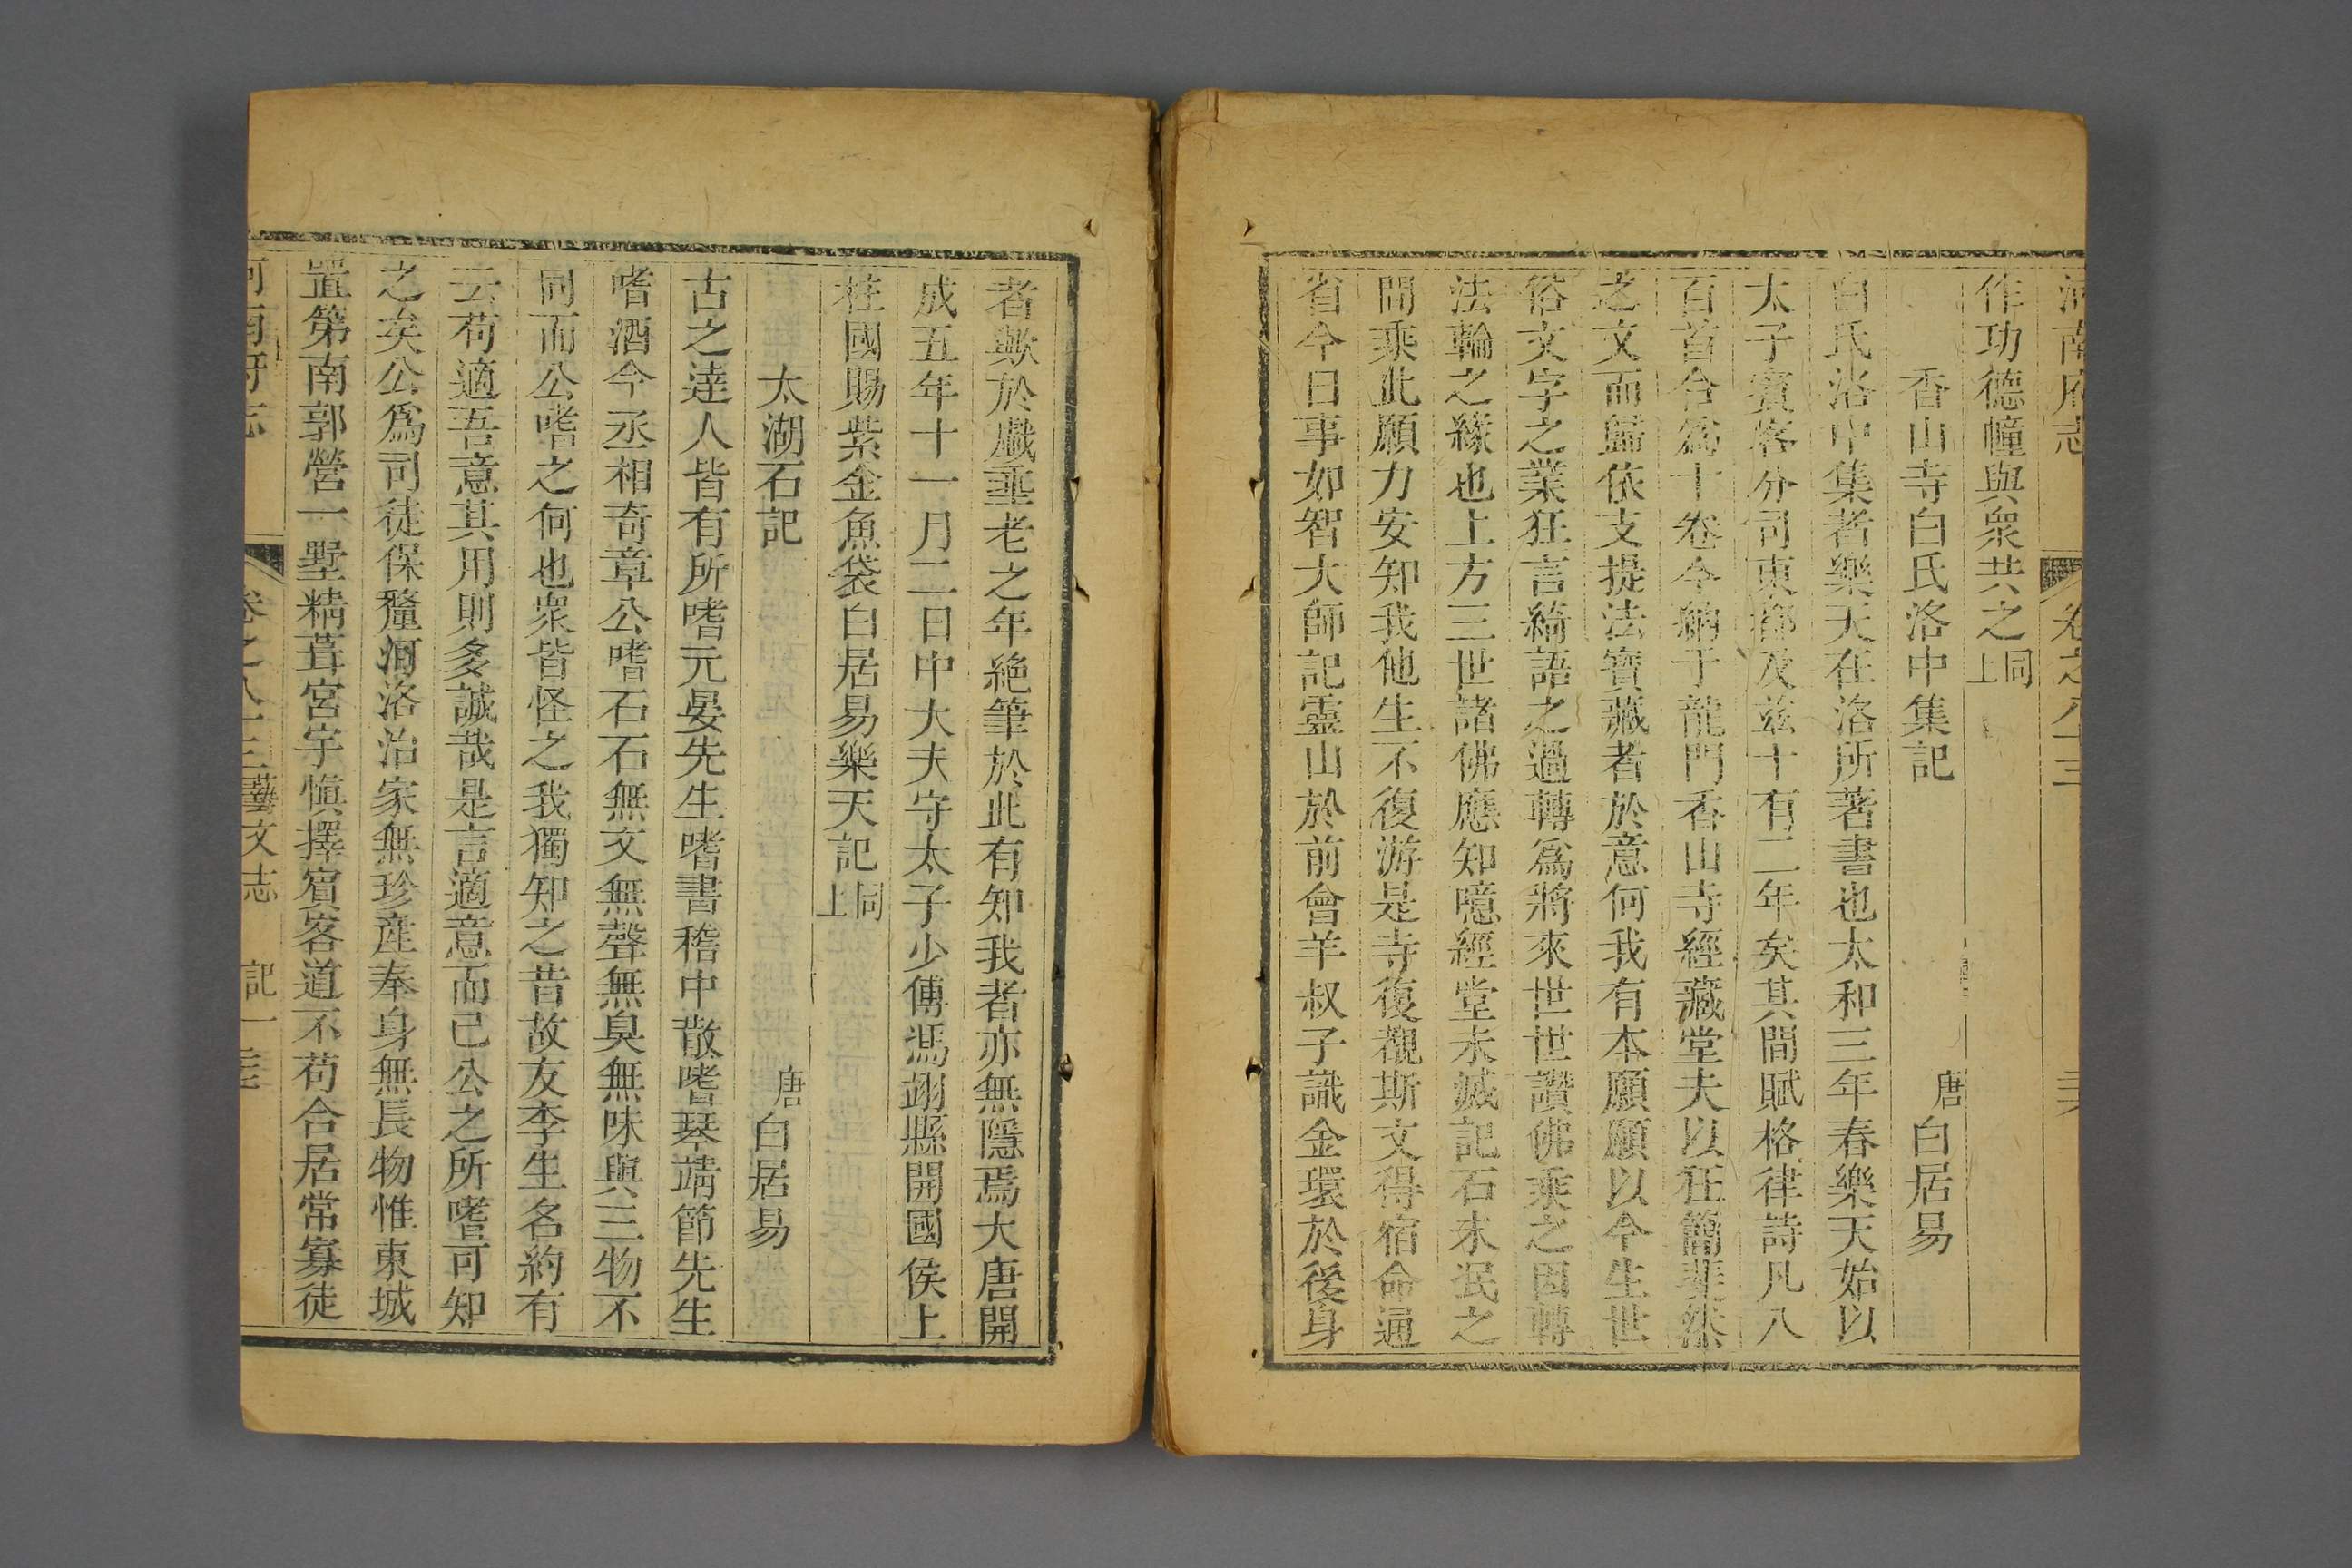 河南府志 卷之八十三
作功德幢與衆共之同上
香山寺白氏洛中集記 唐白居易
白氏洛中集者樂天在洛所著書也太和三年春樂天始以
太子賓客分司東都及茲十有二年矣其間賦格律詩凡八
百首合爲十卷今納于龍門香山寺經藏堂夫以狂簡斐然
之文而歸依支提法寶藏者於意何我有本願願以今生世
俗文字之業狂言綺語之過轉爲將來世世讚佛乘之因轉
法輪之緣也上方三世諸佛應知噫經堂未滅記石未泯之
間乘此願力安知我他生不復游是寺復覩斯文得宿命通
省今日事如智大師記靈山於前會羊叔子識金環於後身
者歟於戲垂老之年絶筆於此有知我者亦無隱焉大唐開
成五年十一月二日中大夫守太子少傅馮翊縣開國侯上
柱國賜紫金魚袋白居易樂天記同上
太湖石記 唐白居易
古之達人皆有所嗜元晏先生嗜書嵇中散嗜琴靖節先生
嗜酒今丞相奇章公嗜石石無文無聲無臭無味與三物不
同而公嗜之何也衆皆怪之我獨知之昔故友李生名約有
云苟適吾意其用則多誠哉是言適意而已公之所嗜可知
之矣公爲司徒保釐河洛治家無珍産奉身無長物惟東城
置第南郭營一墅精葺宮宇慎擇賓客道不苟合居常寡徒
河南府志 卷之八十三藝文志 記一